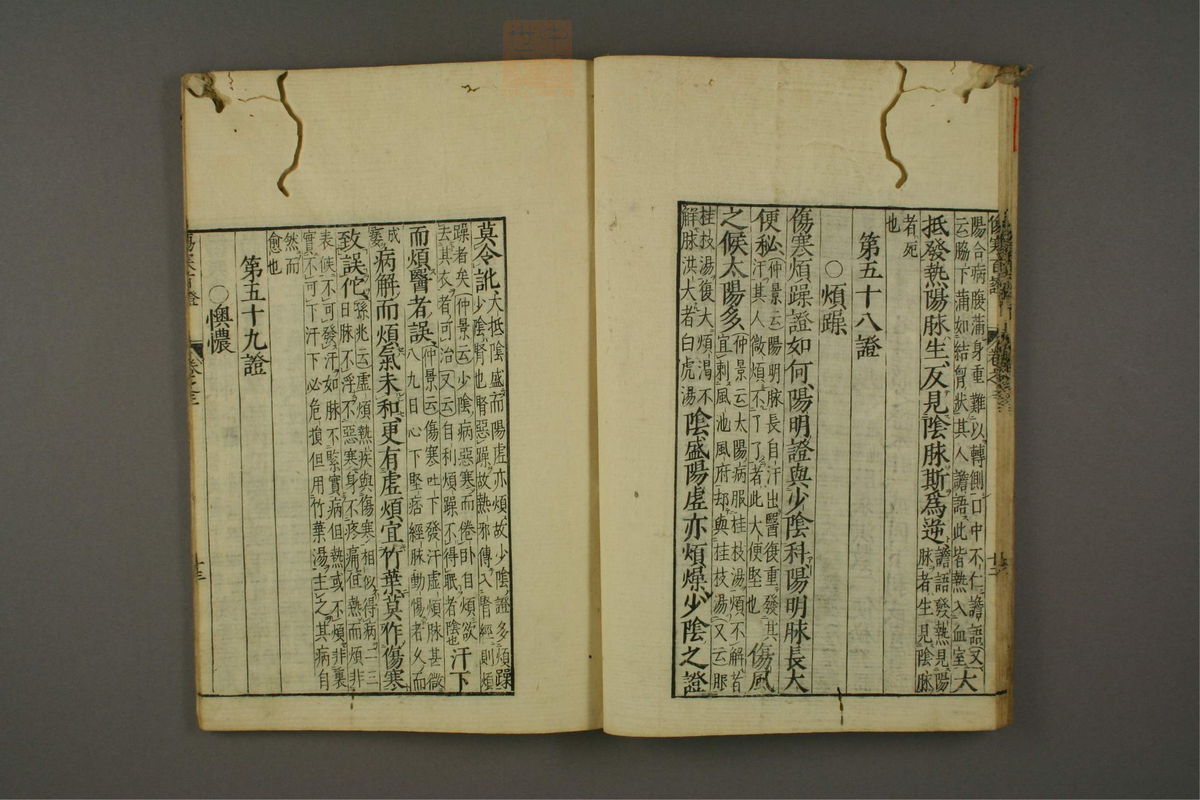 陽合病腹滿身重難以轉側口中不仁譫語又
云脇下滿如結胷狀其人譫語此皆熱入血室大
抵發熱陽脉生反見陰脉斯爲逆譫語發熱見陽
脉者生見陰脉
者死
也
第五十八證
○煩躁
傷寒煩躁證如何陽明證與少陰科陽明脉長大
便秘仲景云陽明脉長自汗出醫復重發其
汗其人微煩不了了者此大便堅也傷風
之候太陽多仲景云太陽病服桂枝湯煩不解者
宜刺風池風府却與桂枝湯又云服
桂枝湯復大煩渴不
解脉洪大者白虎湯陰盛陽虛亦煩燥少陰之證
莫令訛大抵陰盛而陽虛亦煩故少陰證多煩躁
少陰腎也腎惡躁故熱邪傳入腎經則煩
躁者矣仲景云少陰病惡寒而倦卧目煩欲
去其衣者可治又云自利煩躁不得眠者陰也汗下
而煩醫者誤仲景云傷寒吐下發汗虛煩脉甚微
八九日心下堅痞經脉動惕者久而
成
痿病解而煩氣未和更有虛煩宜竹葉莫作傷寒
致誤佗孫兆云虛煩熱疾與傷寒相似得病二三
日脉不浮不惡寒身不疼痛但熱而煩非
表候不可發汗如脉不緊實病但熱或不煩非裏
實不可下汗下必危損但用竹葉湯主之其病自
然而
愈也
第五十九證
○懊憹